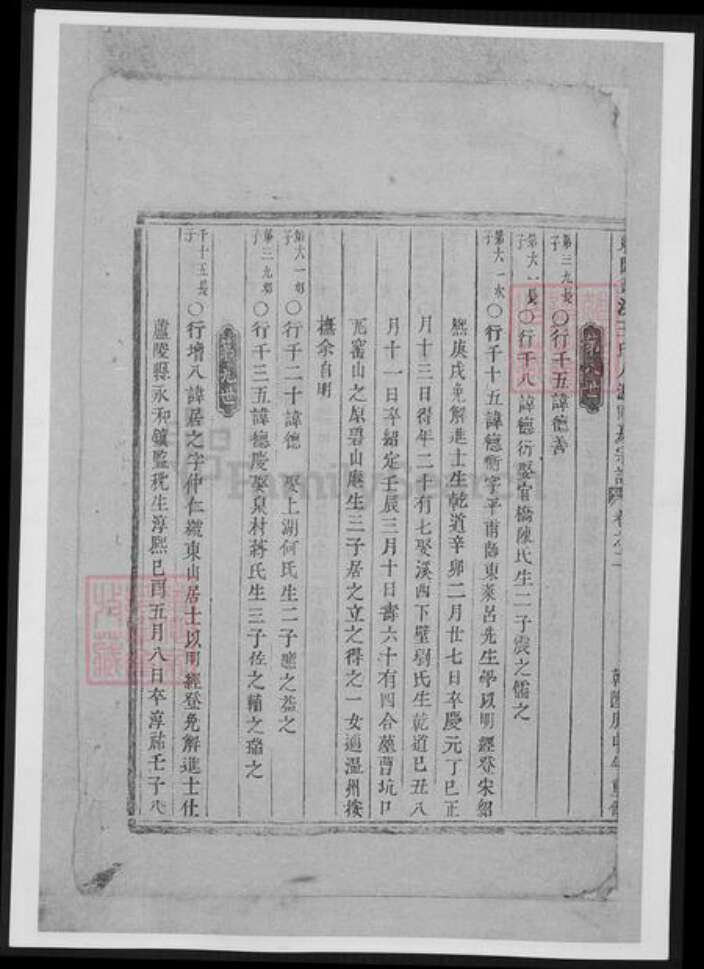 宗譜 卷之二
第三九長子 〇行千五諱德善
第六一長子 〇行千八諱德衍娶官橋陳氏生二子震之儒之
第六一次子 〇行千十五諱德衡字平甫師東萊呂先生學以明經登宋紹
熙庚戌免解進士生乾道辛卯二月廿七日卒慶元丁巳正
月十三日得年二十有七娶溪西下壁劉氏生乾道己丑八
月十一日卒紹定壬辰三月十日壽六十有四合墓曹坑口
瓦窰山之原碧山庵生三子居之立之得之一女適溫州按
撫余自明
第六一 子 〇行千二十諱德 娶上湖何氏生二子 之益之
第三九 子 〇行千三五諱德慶娶泉村蔣氏生三子佐之輔之璐之
千十五長子 〇行增八諱居之字仲仁號東山居士以明經登免解進士仕
廬陵縣永和鎮監稅生淳熙己酉五月八日卒淳祐壬子
FamilySearch